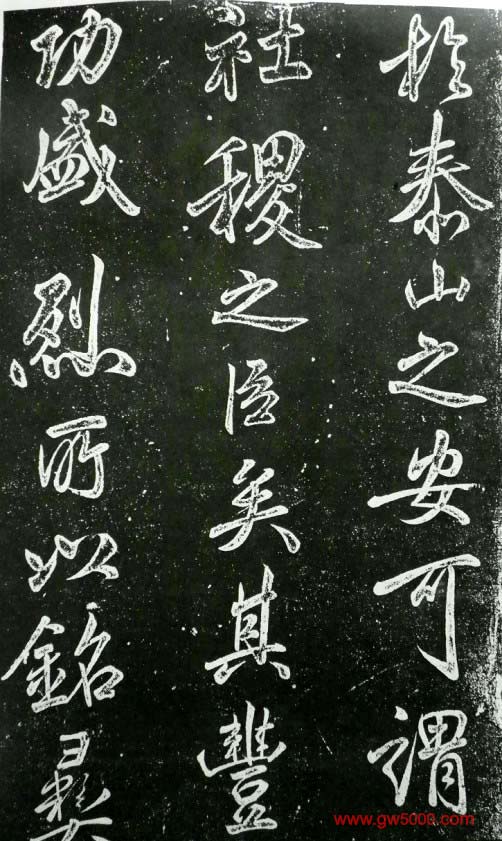 於泰山之安可謂
社稷之臣矣其豐
功盛烈所以銘彝
www.gw5000.com